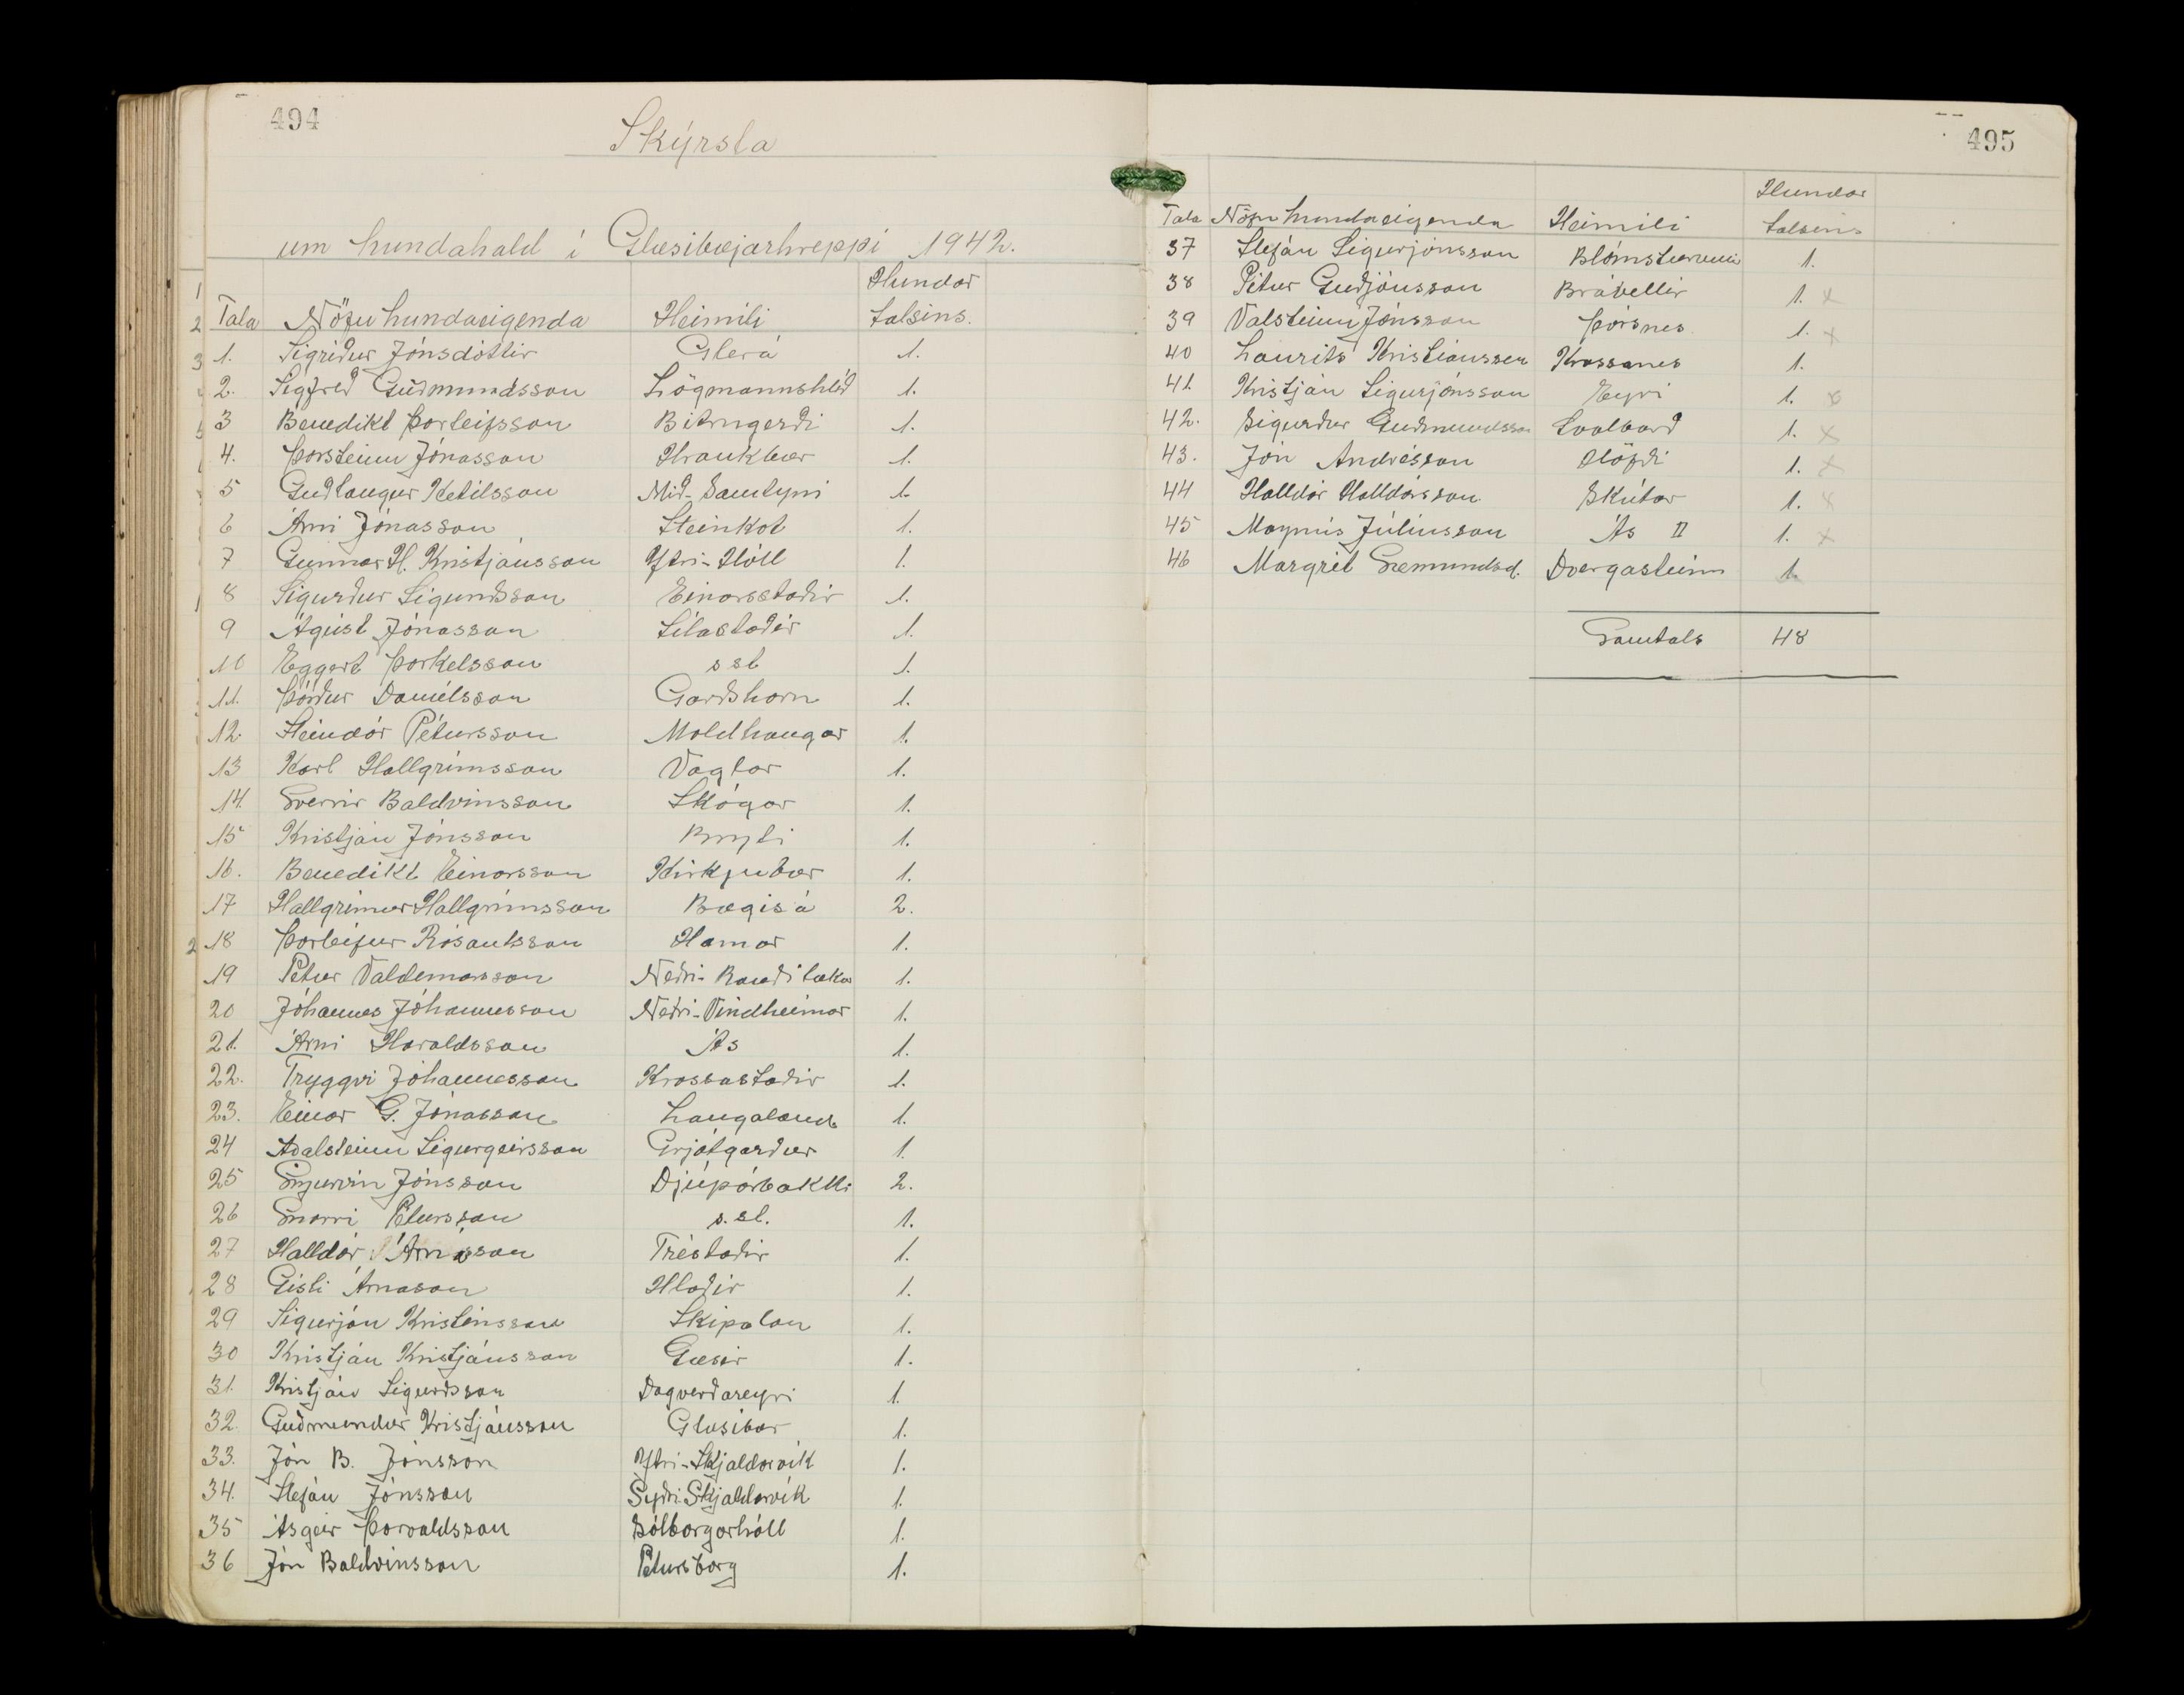 494
Skýrsla
um hundahald í Glæsibæjarhreppi 1942.
Hundar
Tala Nöfn hundaeigenda Heimili talsins.
1. Sigríður Jónsdóttir Glerá 1.
2. Sigfred Guðmundsson Lögmannshlíð 1.
3 Benedikt Þorleifsson Bitrugerði 1.
4. Þorsteinn Jónasson Hraukbær 1.
5 Guðlaugur Ketilsson Mið-Samtýni 1.
6 Árni Jónasson Steinkot 1.
7 Gunnar H. Kristjánsson Ytri-Hóll 1.
8 Sigurður Sigurðsson Einarsstaðir 1.
9 Ágúst Jónasson Sílastaðir 1.
10 Eggert Þorkelsson s st 1.
11. Þórður Daníelsson Garðshorn 1.
12. Steindór Pétursson Moldhaugar 1.
13 Karl Hallgrímsson Vaglar 1.
14. Sverrir Baldvinsson Skógar 1.
15 Kristján Jónsson Bryti 1.
16. Benedikt Einarsson Kirkjubær 1.
17 Hallgrímur Hallgrímsson Bægisá 2.
18 Þorleifur Rósantsson Hamar 1.
19 Pétur Valdemarsson Neðri-Rauðilækur 1.
20 Jóhannes Jóhannesson Neðri-Vindheimar 1.
21. Árni Haraldsson Ás 1.
22. Tryggvi Jóhannesson Krossastaðir 1.
23. Einar G. Jónasson Laugaland 1.
24 Aðalsteinn Sigurgeirsson Grjótgarður 1.
25 Sigurvin Jónsson Djúpárbakki 2.
26 Snorri Pétursson s. st. 1.
27 Halldór Árnason Tréstaðir 1.
28 Gísli Árnason Hlaðir 1.
29 Sigurjón Kristinsson Skipalón 1.
30 Kristján Kristjánsson Gæsir 1.
31. Kristján Sigurðsson Dagverðareyri 1.
32. Guðmundur Kristjánsson Glæsibær 1.
33. Jón B. Jónsson Ytri-Skjaldarvík 1.
34. Stefán Jónsson Syðri Skjaldarvík 1.
35 Ásgeir Þorvaldsson Sólborgarhóll 1.
36 Jón Baldvinsson Pétursborg 1.
495
Hundar
Tala Nöfn hundaeigenda Heimili talsins
37 Stefán Sigurjónsson Blómsturvellir 1.
38 Pétur Guðjónsson Brávellir 1. x
39 Valsteinn Jónsson Þórsnes. 1. x
40 Laurits Kristiansen Krossanes 1.
41. Kristján Sigurjónsson Eyri 1. x
42. Sigurður Guðmundsson Svalbarð 1. x
43. Jón Andrésson Höfði 1. x
44 Halldór Halldórsson Skútar 1. x
45 Magnús Júlíusson Ás II 1. x
46 Margrét Sæmundsd. Dvergasteinn 1.
Samtals 48